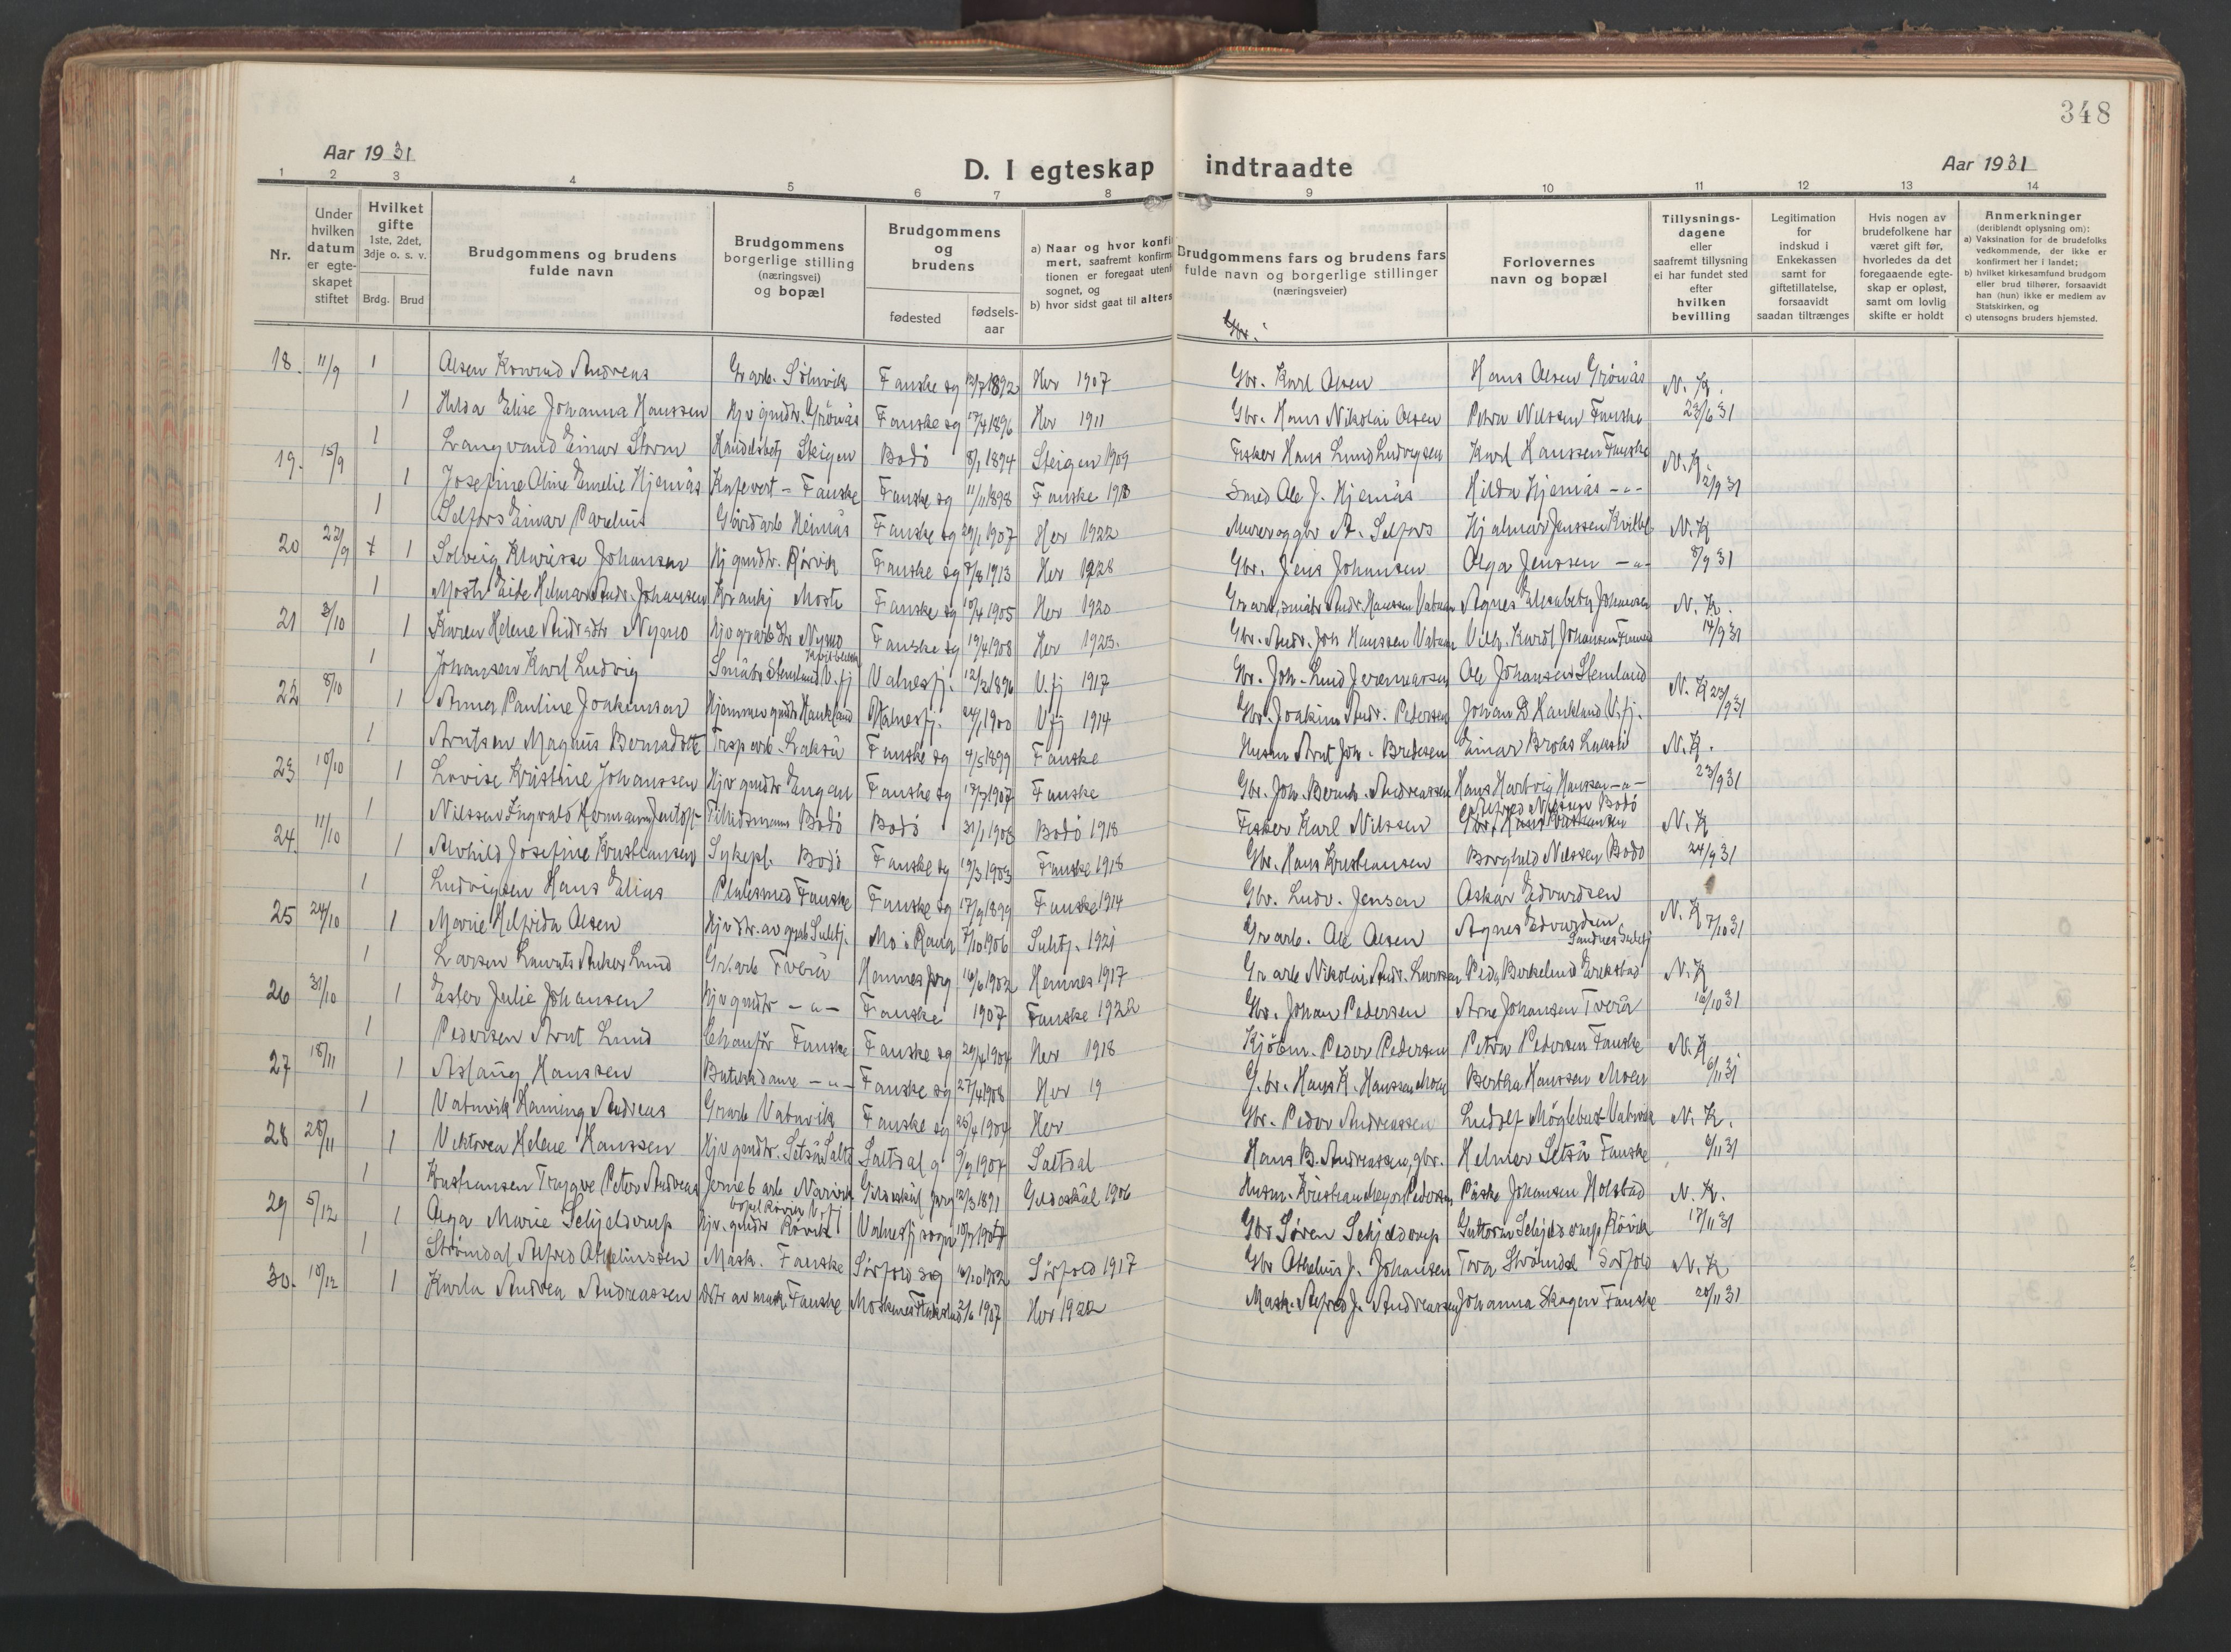 348
Aar 1931
D. I egteskap indtraadte
Aar 1931
1 2 3 4 5 6 7 8 9 10 11 12 13 14
Nr.
Under hvilken datum er egteskapet stiftet
Hvilket gifte 1ste, 2det, 3dje o. s. v.
Brdg. Brud
Brudgommens og brudens fulde navn
Brudgommens borgerlige stilling (næringsvei) og bopæl
Brudgommens og brudens
fødested
fødsels-aar
a) Naar og hvor konfi
mert, saafremt konfirm
tionen er foregaat uten
sognet, og
b) hvor sidst gaat til alters
Brudgommens fars og brudens fars fulde navn og borgerlige stillinger (næringsveier)
Forlovernes navn og bopæl
Tillysnings-dagene eller saafremt tillysning ei har fundet sted efter hvilken bevilling
Legitimation for indskud i Enkekassen samt for giftetillatelse, forsaavidt saadan tiltrænges
Hvis nogen av brudefolkene har været gift før, hvorledes da det foregaaende egte-skap er opløst, samt om lovlig skifte er holdt
Anmerkninger (deriblandt oplysning om):
a) Vaksination for de brudefolks vedkommende, der ikke er konfirmert her i landet;
b) hvilket kirkesamfund brudgom eller brud tilhører, forsaavidt han (hun) ikke er medlem av Statskirken, og
c) utensogns bruders hjemsted.
Gbr.
18. 11/9 1 Olsen Konrad Andreas Grarb. Sölvvik Fauske sg 12/7 1892 Her 1907 Gbr. Karl Olsen Hans Olsen Grönås N. K.
1 Hilda Elise Johanna Hanssen Hjv gmdtr. Grönås Fauske sg 17/4 1896 Her 1911 Gbr. Hans Nikolai Olsen Petra Nilssen Fauske 23/6 31
19. 15/9 1 Langvand Einar Storm Handelsbetj Steigen Bodö 8/1 1894 Steigen 1909 Fisker Hans Lund Ludvigsen Karl Hanssen Fauske N. K.
1 Josefine Oline Emelie Hjemås Kafevert - Fauske Fauske sg 11/11 1898 Fauske 1913 Smed Ole J. Hjemås Hilda Hjemås -"- 2/9 31
20 22/9 1 Selfors Einar Parelius Gårdarb Heimås Fauske sg 29/1 1907 Her 1922 Murer og gbr A. Selfors Hjalmar Jenssen Kvitbl. N. K
1 Solveig Klarisse Johansen Hj gmdtr. Rörvik Fauske sg 7/8 1913 Her 1928 Gbr. Jens Johansen Olga Jenssen -"- 8/9 31
21 3/10 1 Mosti Eide Helmar Andr. Johansen Krankj Mosti Fauske sg 10/4 1905 Her 1920 Grarb, småbr Andr. Hanssen Vatnan Agnes Elisabeth Johansen N. K.
1 Karen Helene Andr.dtr Nymo Hjv grarb dtr Nymo Fauske sg 19/4 1908 Her 1923. Gbr. Andr. Joh. Hanssen Vatnan Vilh. Karolf Johansen 14/9 31
22 8/10 1 Johansen Karl Ludvig Småbr Stemland V.fj Valnesfj. 12/2 1896 V.fj 1917 Gbr. Joh. Lund Jeremiassen Ole Johansen Stemland N. K 23/9 31
1 Anna Pauline Joakimsen Hjemmev gmdtr Haukland Valnesfj. 24/1 1900 Vfj 1914 Gbr. Joakim Andr. Pedersen Johan D Haukland V.fj.
23 10/10 1 Arntsen Magnus Bernadotte Trsp arb. Lakså Fauske sg 4/5 1899 Fauske Husm Arnt Joh. Bredesen Einar Brohs Lakså N. K.
1 Lovise Kristine Johanssen Hjv gmdtr Engan Fauske sg 17/7 1907 Fauske Gbr. Joh. Bernh. Andreassen Hans Hartvig Hanssen -"- 23/9 31
24. 11/10 1 Nilssen Ingvald Hermann Jentoft Tillidsmann Bodö Bodö 31/1 1903 Bodö 1918 Fisker Karl Nilssen Alfred Nilssen Bodö N. K
1 Alvhild Josefine Kristiansen Sykepl. Bodö Fauske sg 19/3 1903 Fauske 1918 Gbr. Hans Kristiansen Borghild Nilssen Bodö 24/9 31
25 24/10 1 Ludvigsen Hans Elias Platesmed Fauske Fauske sg 17/9 1899 Fauske 1914 Gbr. Ludv. Jensen Oskar Edvardsen N. K 7/10 31
1 Marie Helfrida Olsen Hjv dtr. av grarb Sulitj. Mo i Rana 7/10 1906 Sulitj. 1921 Grarb. Ole Olsen Agnes Edvardsen Sandnes Sulitj
26 31/10 1 Larsen Laurits Anker Lund Grbarb Tverå Hemnes prg 16/6 1902 Hemnes 1917 Grarb Nikolai Andr. Larssen Peder Berkelund Erikstad N. K
1 Ester Julie Johansen Hjv gmdtr -"- Fauske 1907 Fauske 1922 Gbr. Johan Pedersen Arne Johansen Tverå 16/10 31
27 18/11 1 Pedersen Arnt Lund Chauför Fauske Fauske sg 29/4 1904 Her 1918 Kjöbm. Peder Pedersen Petra Pedersen Fauske N. K
1 Aslaug Hanssen Butikkdame -"- Fauske sg 27/4 1908 Her 19 G.br. Hans K. Hanssen Moen Bertha Hanssen Moen 6/11 31
28 28/11 1 Vatnvik Haming Andreas Grarb Vatnvik Fauske sg 25/4 1904 Her Gbr. Peder Andreassen Ludolf Möglebust Vatnvik N. K.
1 Viktoria Helene Hanssen Hjv gmdtr. Setså Saltd Saltdal g 9/9 1907 Saltdal Hans B. Andreassen, gbr. Helmer Setså Fauske 6/11 31
29 5/12 1 Kristiansen Trygve Peter Andreas Jerneb arb Narvik Gildeskål prg 12/3 1891 Gildeskål 1906 Husm. Kristian Meyer Pedersen Påske Johansen Holstad N. K.
1 Olga Marie Schjelderup Hjv. gmdtr Rövik Valnesfj sogn Gbr Sören Schjelderup Guttorm Schjelderup Rövik 17/11 31
30. 10/12 1 Strömdal Alfred Athelinssen Mask. Fauske Sörfold sg 16/10 1902 Sörfold 1917 Gbr Athelius J. Johansen Tora Strömdal Sörfold N. K.
1 Karla Andrea Andreassen Dtr av mask. Fauske Moskenes Flakstad 2/6 1907 Her 1922 Mask. Alfred J. Andreassen Johanna Skogen Fauske 20/11 31